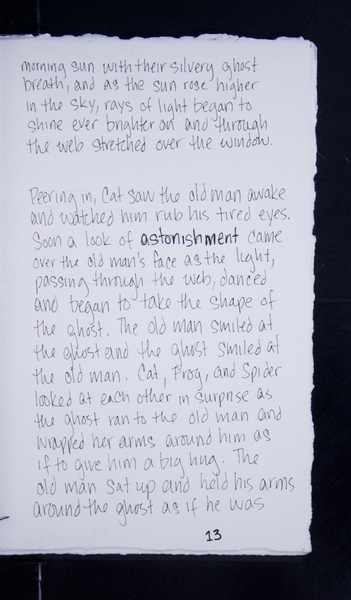 morning sun with their silvery ghost
breath, and as the sun rose higher
in the sky, rays of light began to
shine ever brighter on and through
the web stretched over the window.
Peering in, Cat saw the old man awake
and watched him rub his tired eyes.
Soon a look of astonishment came
over the old man's face as the light,
passing through the web, danced
and began to take the shape of
the ghost. The old man smiled at
the ghost and the ghost smiled at
the old man. Cat, Frog, and Spider
looked at each other in surprise as
the ghost ran to the old man and
wrapped her arms around him as
if to give him a big hug. The
old man sat up and held his arms
around the ghost as if he was
13